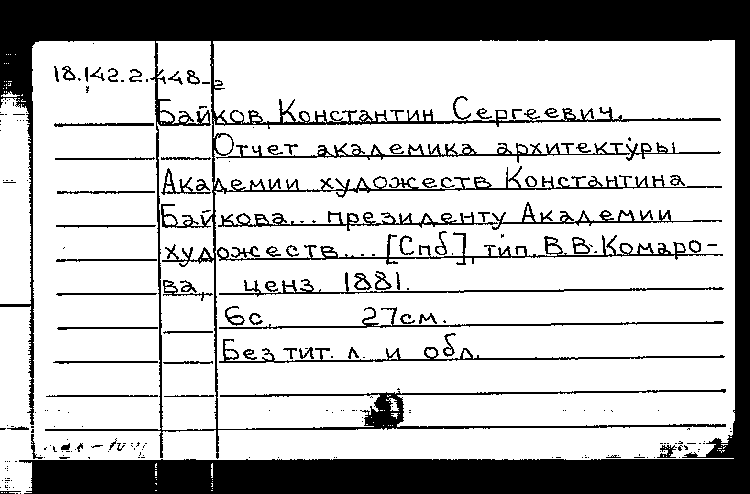 18.142.2.448-г
Байков, Константин Сергеевич.
Отчет академика архитектуры
Академии художеств Константина
Байкова... президенту Академии
художеств.... [Спб.], тип. В.В.Комаро-
ва, ценз. 1881.
6с. 27см.
Без тит. л. и обл.